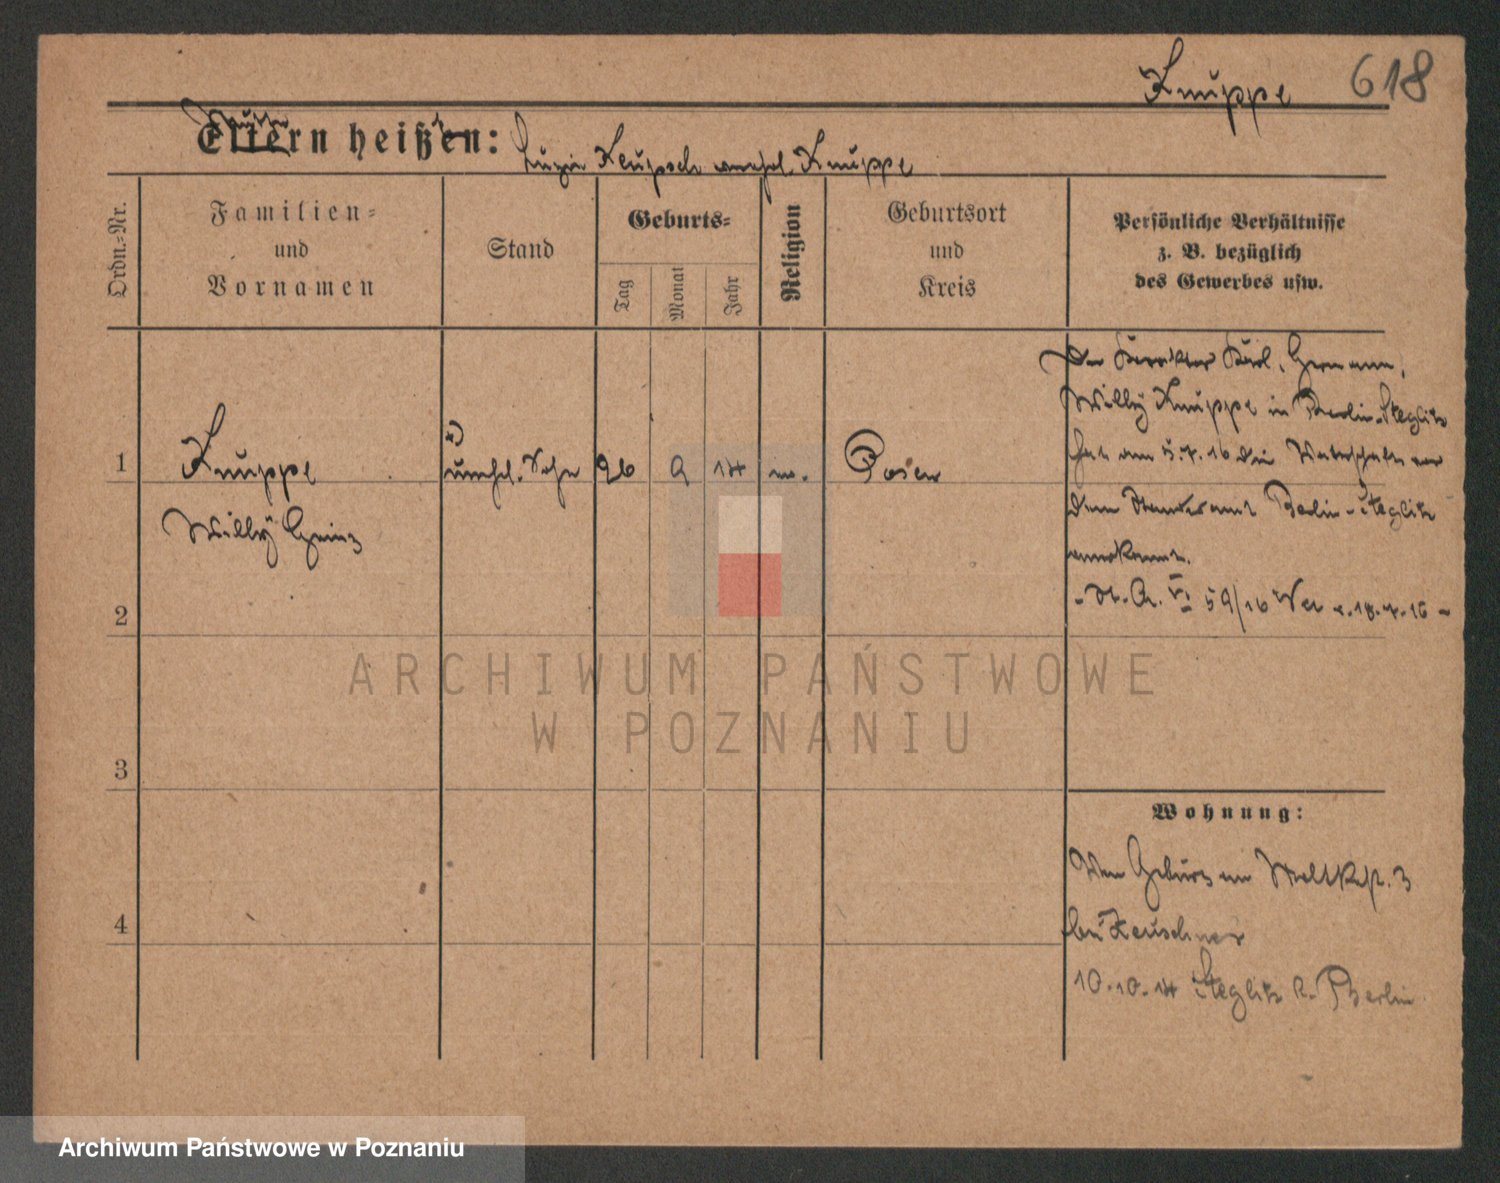 Knuppe 618
Eltern heißen: Luzie Keupsch verehl. Knuppe
Mutter
Ordn.=Nr.
Familien=
und
Vornamen
Stand
Geburts=
Tag
Monat
Jahr
Religion
Geburtsort
und
Kreis
Persönliche Verhältnisse
z. B. bezüglich
des Gewerbes usw.
1
Knuppe
Willy Heinz
unehel. Sohn
26
9
14
ev.
Posen
Der Direktor Karl, Hermann,
Willy Knuppe in Berlin-Steglitz
hat am 5.7.16 die Vaterschaft vor
dem Standesamt Berlin-Steglitz
anerkannt.
- St. A. VI 59/16 v. 18.7.16 -
2
3
4
Wohnung:
Von Geburt an 3
bei Keuschner
10.10.14 Steglitz b. Berlin
ARCHIWUM PAŃSTWOWE
W POZNANIU
Archiwum Państwowe w Poznaniu